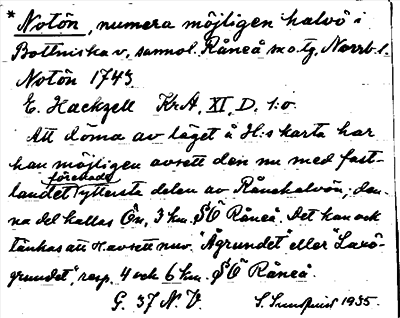 * Notön, numera möjligen halvö i
Bottniska v, sannol. Råneå sn o. tg, Norrb. l.
Notön 1743
E. Hackzell KrA, XI, D, 1:o.
Att döma av läget å H:s karta har
han möjligen avsett den nu med fast-
landet förenade yttersta delen av Rånehalvön; den-
na del kallas Ön, 3 km. SÖ Råneå. Det kan ock
tänkas att H avsett nuv. "Ågrundet" eller "Laxö-
grundet", resp. 4 och 6 km. SÖ Råneå.
G. 37 N. V. S. Sundqvist 1935.